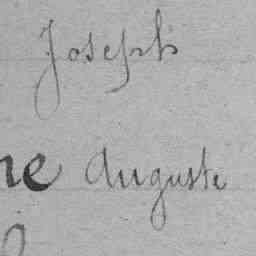 Joseph
ne Auguste